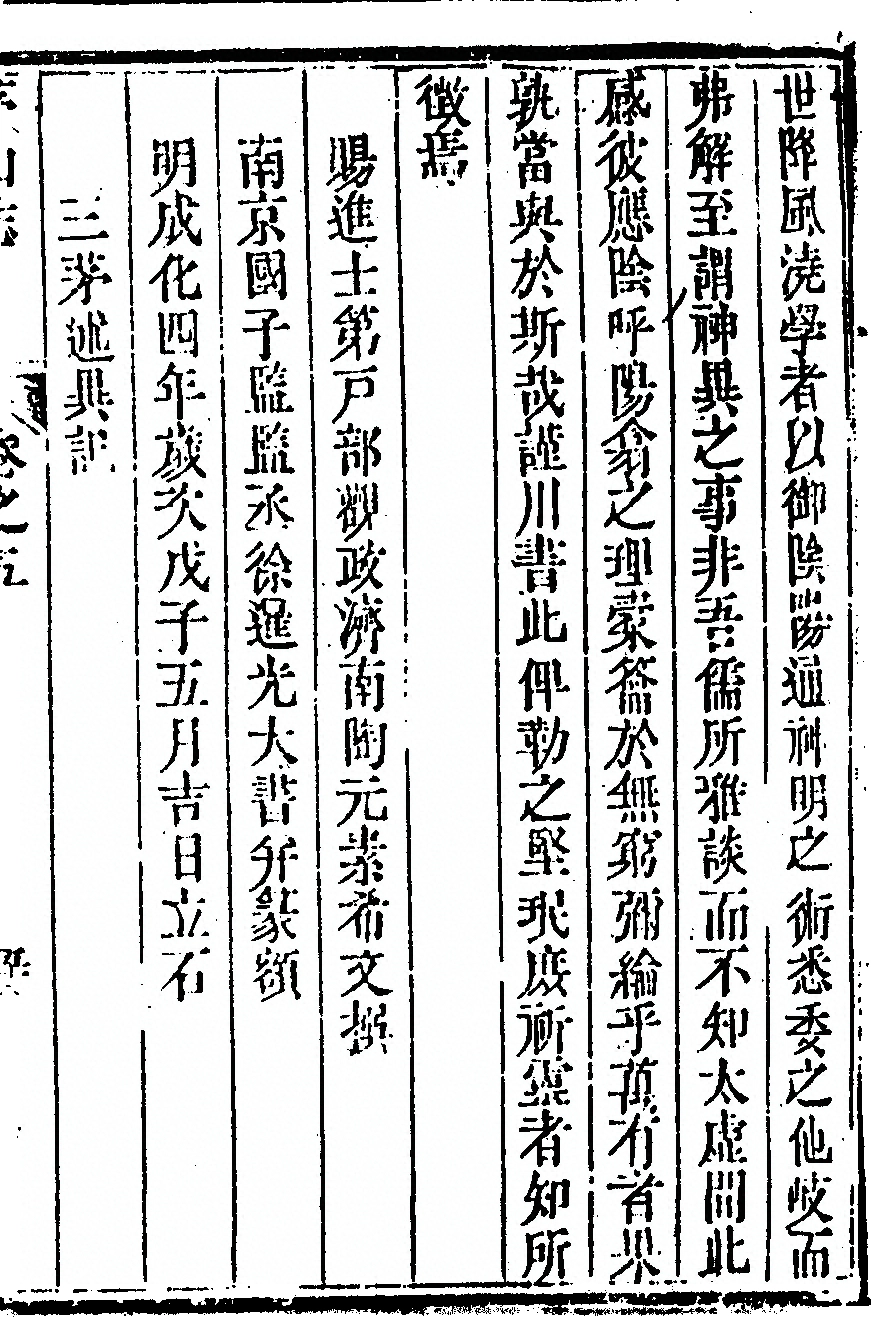 世降風澆學者以御陰陽通神明之術悉委之他岐而
弗解至謂神異之事非吾儒所雅談而不知太虛間此
感彼應陰呼陽翕之理蒙蓄於無窮彌綸乎萬有者果
孰當與於斯哉謹用書此俾勒之堅珉庶祈靈者知所
徵焉
賜進士第戸部觀政濟南陶元素希文撰
南京國子監監丞徐暹光大書并篆額
明成化四年歲次戊子五月吉日立石
三茅述異記
山志
卷之五